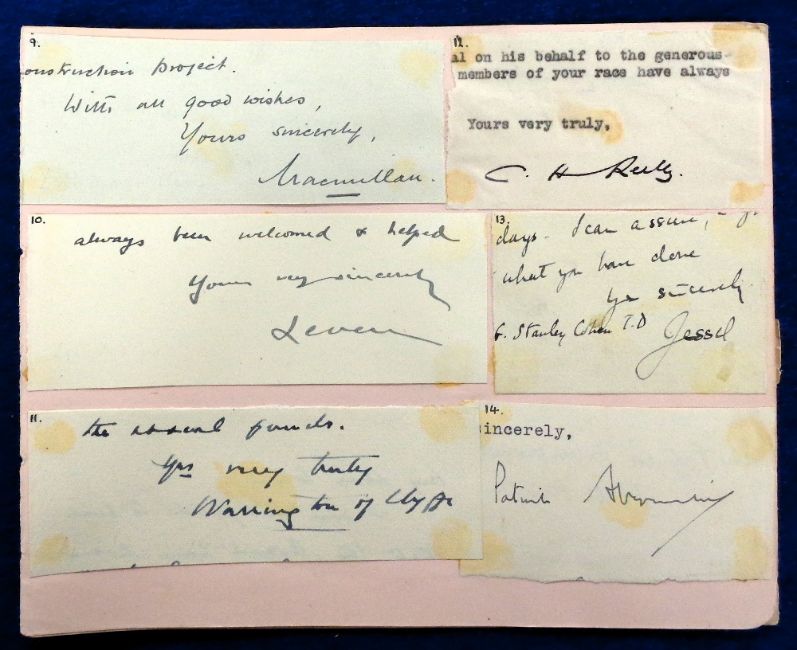 9.
onstruction project.
With all good wishes,
Yours sincerely,
Macmillan.
10.
always been welcomed & helped
Yours very sincerely
Leven
11.
the funds.
Yrs very truly
Warrington of Clyffe
12.
al on his behalf to the generous
members of your race have always
Yours very truly,
C. H. Reilly.
13.
days. I can assure,
what you have done
Yrs sincerely
G. Stanley Cohen T.D
Jessel
14.
incerely,
Patrick Abercrombie